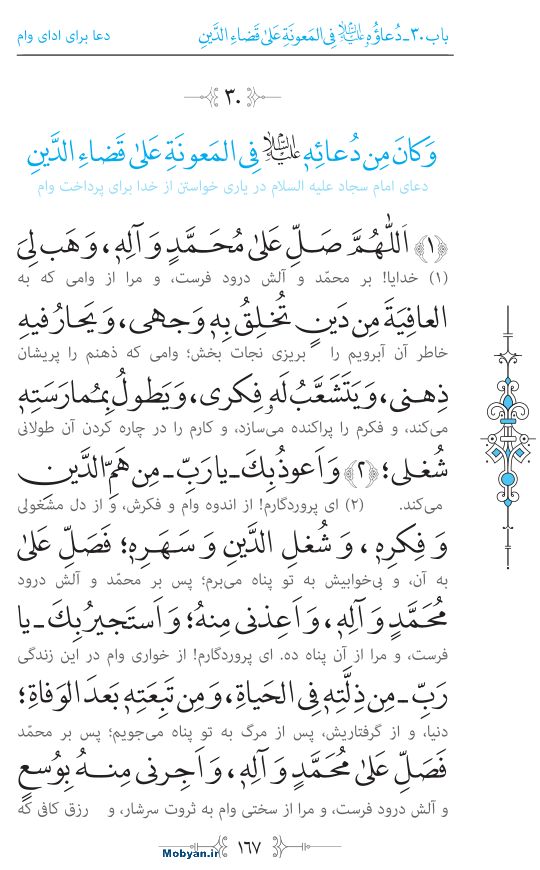 باب ۳۰ـ دُعاؤُهُ علیه‌السلام فِی المَعونَةِ عَلیٰ قَضاءِ الدَّینِ
دعا برای ادای وام
۳۰
وَ کانَ مِن دُعائِهِ علیه‌السلام فِی المَعونَةِ عَلیٰ قَضاءِ الدَّینِ
دعای امام سجاد علیه السلام در یاری خواستن از خدا برای پرداخت وام
﴿۱﴾ اَللّٰهُمَّ صَلِّ عَلیٰ مُحَمَّدٍ وَ آلِهِ، وَ هَب لِیَ
(۱) خدایا! بر محمّد و آلش درود فرست، و مرا از وامی که به
العافِیَةَ مِن دَینٍ تُخلِقُ بِهِ وَجهی، وَ یَحارُ فیهِ
خاطر آن آبرویم را بریزی نجات بخش؛ وامی که ذهنم را پریشان
ذِهنی، وَ یَتَشَعَّبُ لَهُ فِکری، وَ یَطولُ بِمُمارَسَتِهِ
می‌کند، و فکرم را پراکنده می‌سازد، و کارم را در چاره کردن آن طولانی
شُغلی؛ ﴿۲﴾ وَ اَعوذُ بِكَ ـ یا رَبِّ ـ مِن هَمِّ الدَّینِ
می‌کند. (۲) ای پروردگارم! از اندوه وام و فکرش، و از دل مشغولی
وَ فِکرِهِ، وَ شُغلِ الدَّینِ وَ سَهَرِهِ؛ فَصَلِّ عَلیٰ
به آن، و بی‌خوابیش به تو پناه می‌برم؛ پس بر محمّد و آلش درود
مُحَمَّدٍ وَ آلِهِ، وَ اَعِذنی مِنهُ؛ وَ اَستَجیرُ بِكَ ـ یا
فرست، و مرا از آن پناه ده. ای پروردگارم! از خواری وام در این زندگی
رَبِّ ـ مِن ذِلَّتِهِ فِی الحَیاةِ، وَ مِن تَبِعَتِهِ بَعدَ الوَفاةِ؛
دنیا، و از گرفتاریش، پس از مرگ به تو پناه می‌جویم؛ پس بر محمّد
فَصَلِّ عَلیٰ مُحَمَّدٍ وَ آلِهِ، وَ اَجِرنی مِنهُ بِوُسعٍ
و آلش درود فرست، و مرا از سختی وام به ثروت سرشار، و رزق کافی که
۱۶۷
Mobyan.ir